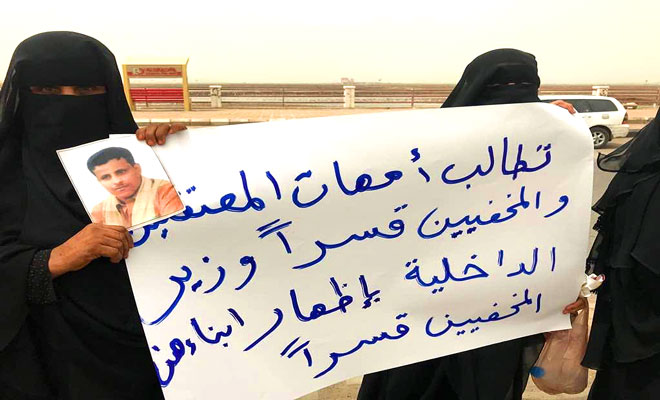 تطالب أمهات المعتقلين
والمخفيين قسراً وزير
الداخلية بإظهار ابناءهن
المخفيين قسراً